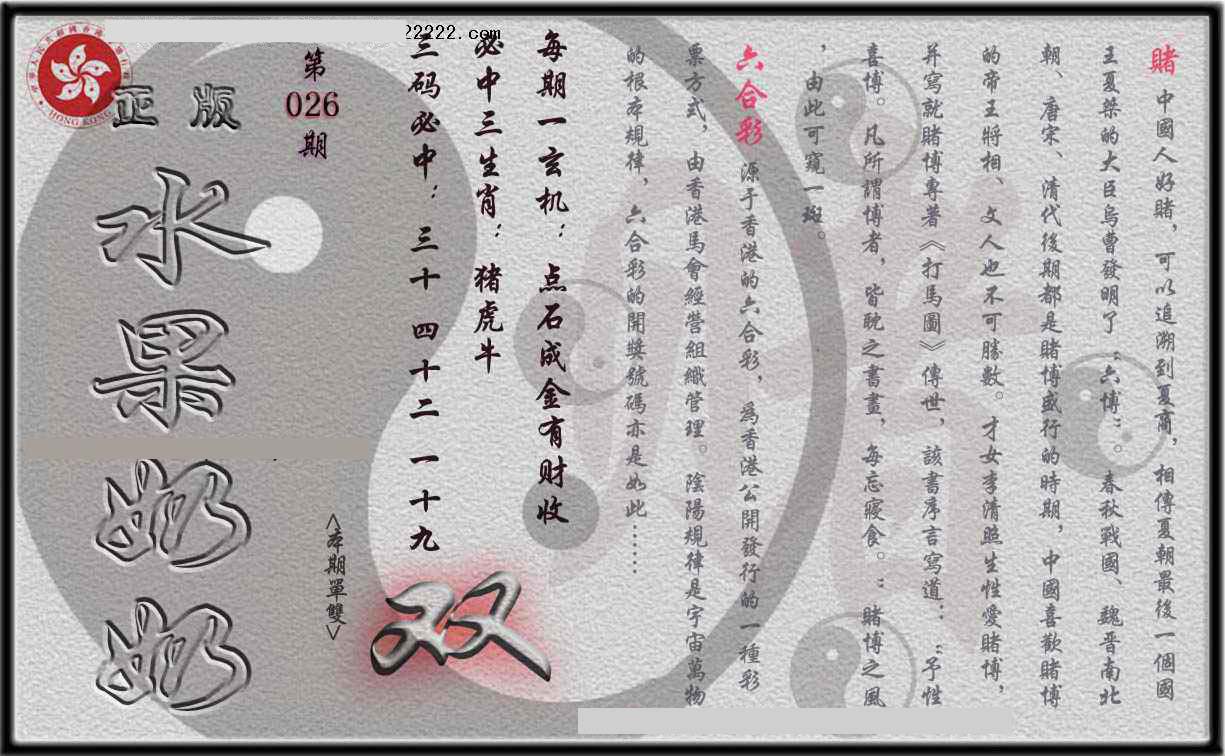 22222.com
正版
水果奶奶
第
026
期
<本期單雙>
双
每期一玄机：点石成金有财收
必中三生肖：猪虎牛
三码必中：三十 四十二 一十九
賭 中國人好賭，可以追溯到夏商，相傳夏朝最後一個國
王夏桀的大臣烏曹發明了“六博”。春秋戰國、魏晋南北
朝、唐宋、清代後期都是賭博盛行的時期，中國喜歡賭博
的帝王將相、文人也不可勝數。才女李清照生性愛賭博，
并寫就賭博專著《打馬圖》傳世，該書序言寫道：“予性
喜博。凡所謂博者，皆耽之書畫，每忘寢食。”賭博之風
，由此可窺一斑。
六合彩 源于香港的六合彩，爲香港公開發行的一種彩
票方式，由香港馬會經營組織管理。陰陽規律是宇宙萬物
的根本規律，六合彩的開獎號碼亦是如此……